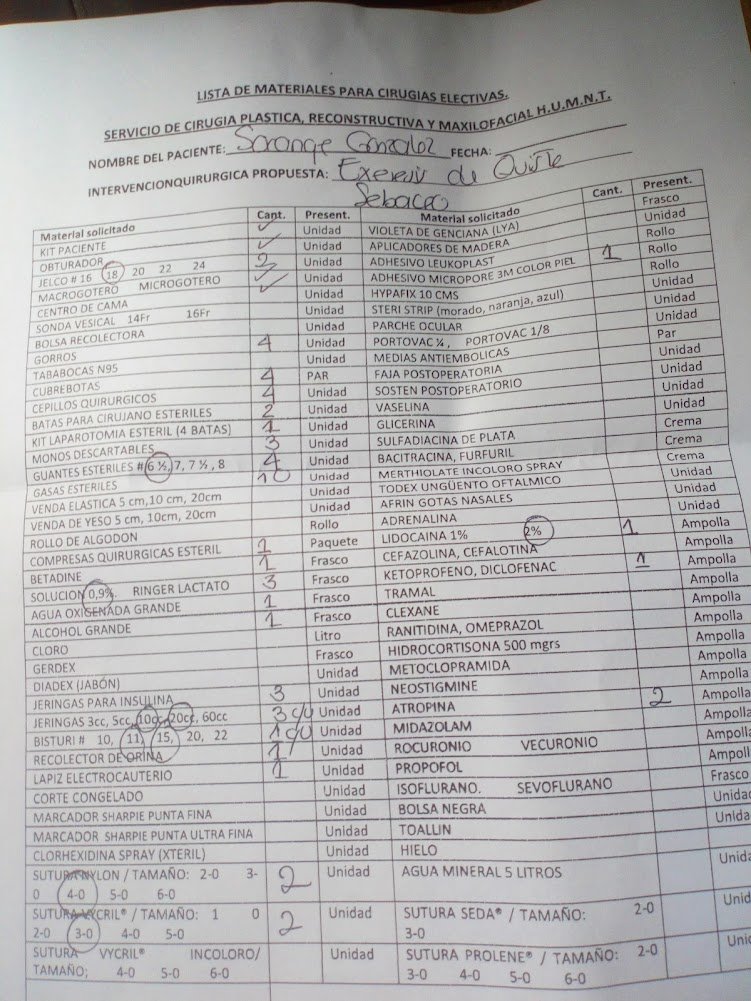 LISTA DE MATERIALES PARA CIRUGIAS ELECTIVAS.
SERVICIO DE CIRUGIA PLASTICA, RECONSTRUCTIVA Y MAXILOFACIAL H.U.M.N.T.
NOMBRE DEL PACIENTE: Sorange Gonzalez FECHA:
INTERVENCIONQUIRURGICA PROPUESTA: Exeresis de Quiste
Sebaceo
Material solicitado Cant. Present. Material solicitado Cant. Present.
KIT PACIENTE ✓ Unidad VIOLETA DE GENCIANA (LYA) Frasco
OBTURADOR ✓ Unidad APLICADORES DE MADERA Unidad
JELCO # 16 18 20 22 24 2 Unidad ADHESIVO LEUKOPLAST Rollo
MACROGOTERO MICROGOTERO ✓ Unidad ADHESIVO MICROPORE 3M COLOR PIEL 1 Rollo
CENTRO DE CAMA ✓ Unidad HYPAFIX 10 CMS Rollo
SONDA VESICAL 14Fr 16Fr Unidad STERI STRIP (morado, naranja, azul) Unidad
BOLSA RECOLECTORA Unidad PARCHE OCULAR Unidad
GORROS 4 Unidad PORTOVAC ¼, PORTOVAC 1/8 Unidad
TABABOCAS N95 Unidad MEDIAS ANTIEMBOLICAS Par
CUBREBOTAS 4 PAR FAJA POSTOPERATORIA Unidad
CEPILLOS QUIRURGICOS 4 Unidad SOSTEN POSTOPERATORIO Unidad
BATAS PARA CIRUJANO ESTERILES 2 Unidad VASELINA Unidad
KIT LAPAROTOMIA ESTERIL (4 BATAS) 1 Unidad GLICERINA Crema
MONOS DESCARTABLES 3 Unidad SULFADIACINA DE PLATA Crema
GUANTES ESTERILES # 6 ½, 7, 7 ½ , 8 4 Unidad BACITRACINA, FURFURIL Crema
GASAS ESTERILES 10 Unidad MERTHIOLATE INCOLORO SPRAY Unidad
VENDA ELASTICA 5 cm,10 cm, 20cm Unidad TODEX UNGÜENTO OFTALMICO Unidad
VENDA DE YESO 5 cm, 10cm, 20cm Unidad AFRIN GOTAS NASALES Unidad
ROLLO DE ALGODON Rollo ADRENALINA Ampolla
COMPRESAS QUIRURGICAS ESTERIL 1 Paquete LIDOCAINA 1% 2% 1 Ampolla
BETADINE 1 Frasco CEFAZOLINA, CEFALOTINA Ampolla
SOLUCION 0,9%. RINGER LACTATO 3 Frasco KETOPROFENO, DICLOFENAC 1 Ampolla
AGUA OXIGENADA GRANDE 1 Frasco TRAMAL Ampolla
ALCOHOL GRANDE 1 Frasco CLEXANE Ampolla
CLORO Litro RANITIDINA, OMEPRAZOL Ampolla
GERDEX Frasco HIDROCORTISONA 500 mgrs Ampolla
DIADEX (JABÓN) Unidad METOCLOPRAMIDA Ampolla
JERINGAS PARA INSULINA 3 Unidad NEOSTIGMINE Ampolla
JERINGAS 3cc, 5cc, 10cc, 20cc, 60cc 3 c/u Unidad ATROPINA 2 Ampolla
BISTURI # 10, 11, 15, 20, 22 1 c/u Unidad MIDAZOLAM Ampolla
RECOLECTOR DE ORINA 1 Unidad ROCURONIO VECURONIO Ampolla
LAPIZ ELECTROCAUTERIO 1 Unidad PROPOFOL Ampolla
CORTE CONGELADO Unidad ISOFLURANO. SEVOFLURANO Frasco
MARCADOR SHARPIE PUNTA FINA Unidad BOLSA NEGRA Unidad
MARCADOR SHARPIE PUNTA ULTRA FINA Unidad TOALLIN Unidad
CLORHEXIDINA SPRAY (XTERIL) Unidad HIELO
SUTURA NYLON / TAMAÑO: 2-0 3- 2 Unidad AGUA MINERAL 5 LITROS Unida
0 4-0 5-0 6-0
SUTURA VYCRIL® / TAMAÑO: 1 0 2 Unidad SUTURA SEDA® / TAMAÑO: 2-0 Unid
2-0 3-0 4-0 5-0 3-0
SUTURA VYCRIL® INCOLORO/ Unidad SUTURA PROLENE® / TAMAÑO: 2-0 Unid
TAMAÑO; 4-0 5-0 6-0 3-0 4-0 5-0 6-0